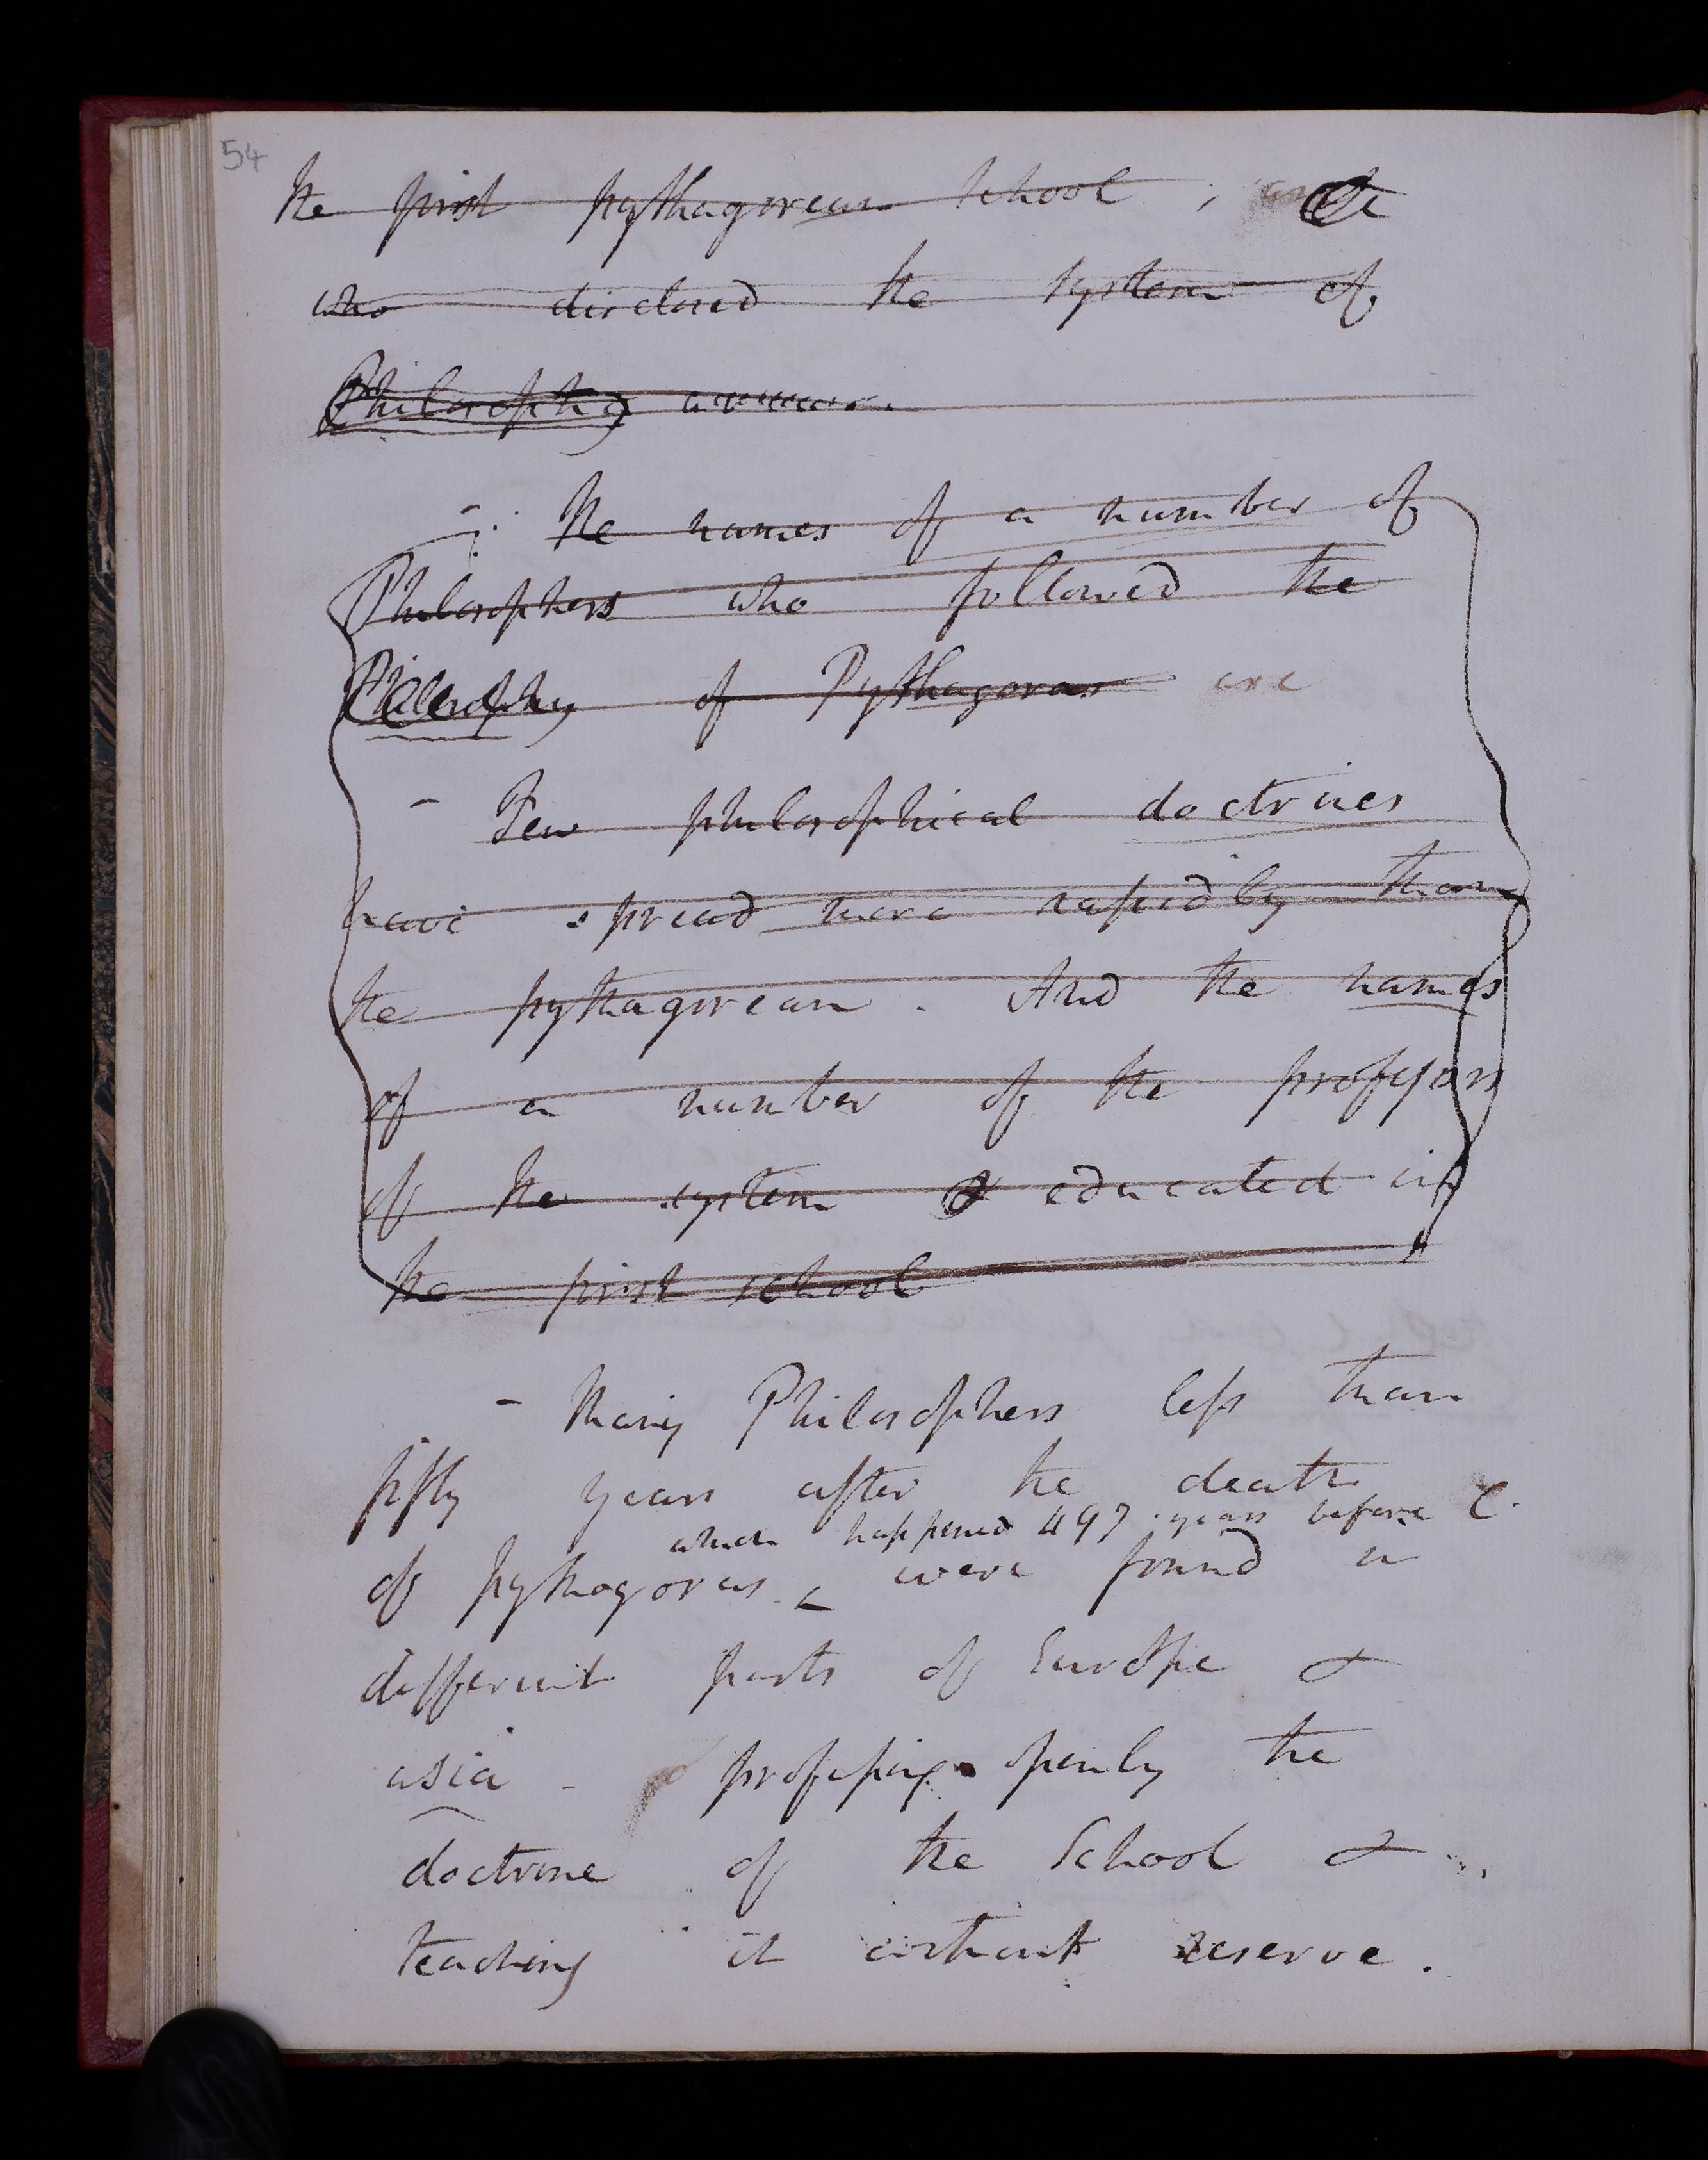 54
the first pythagorean School ; and &
who disclosed the system of
Philosophy
-: the names of a number of
Philosophers who followed the
Philosophy of Pythagoras are
- Few philosophical doctrines
have spread more rapidly than
the pythagorean . And the names
of a number of the professors
of the system & educated in
the first school
- Many Philosophers less than
fifty years after the death
which happened 497 years before C.
of pythagoras were found in
different parts of Europe &
asia - professing openly the
doctrine of the School &
teaching it without reserve .